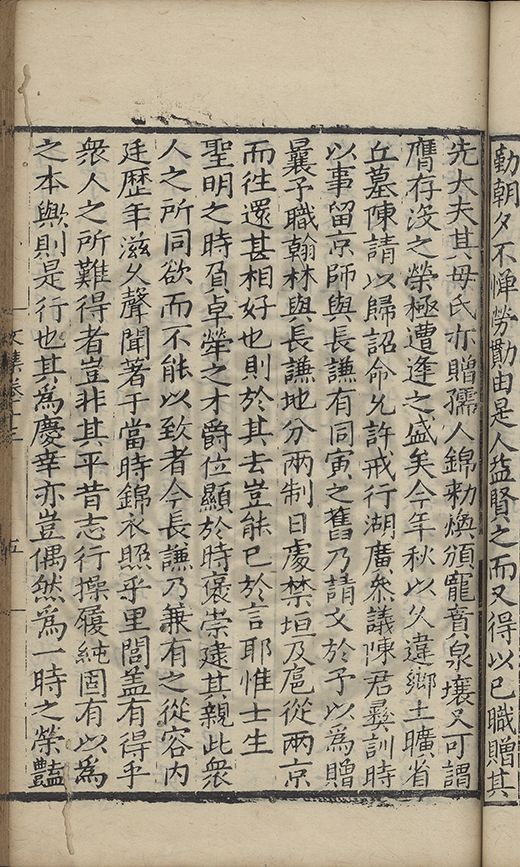 勤朝夕不憚勞勩由是人益賢之而又得以已職贈其
先大夫其母氏亦贈孺人錦勑煥頒寵賁泉壤又可謂
膺存没之榮極遭逢之盛矣今年秋以久違鄉土曠省
丘墓陳請以歸詔命允許戒行湖廣叅議陳君彝訓時
以事留京師與長謙有同寅之舊乃請文於予以為贈
曩予職翰林與長謙地分兩制日處禁垣及扈從兩京
而往還甚相好也則於其去豈能已於言耶惟士生
聖明之時負卓犖之才爵位顯於時褒崇逮其親此衆
人之所同欲而不能以致者今長謙乃兼有之從容内
廷歷年滋久聲聞著于當時錦衣照乎里閭盖有得乎
衆人之所難得者豈非其平昔志行操履純固有以為
之本與則是行也其為慶幸亦豈偶然為一時之榮豔
文集卷十三
五